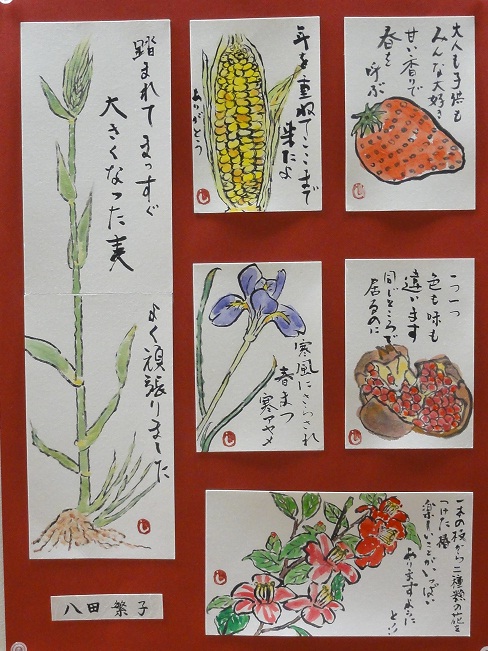 踏まれてまっすぐ
大きくなった麦
よく頑張りました
年を重ねてここまで
来たよ
ありがとう
大人も子供も
みんな大好き
甘い香りで
春を
呼ぶ
寒風にさらされ
春まつ
寒アヤメ
一つ一つ
色も味も
違います
同じところで
居るのに
一本の枝から二種類の花を
つけた椿
楽しいことがいっぱい
ありますように
と…
八田 繁子